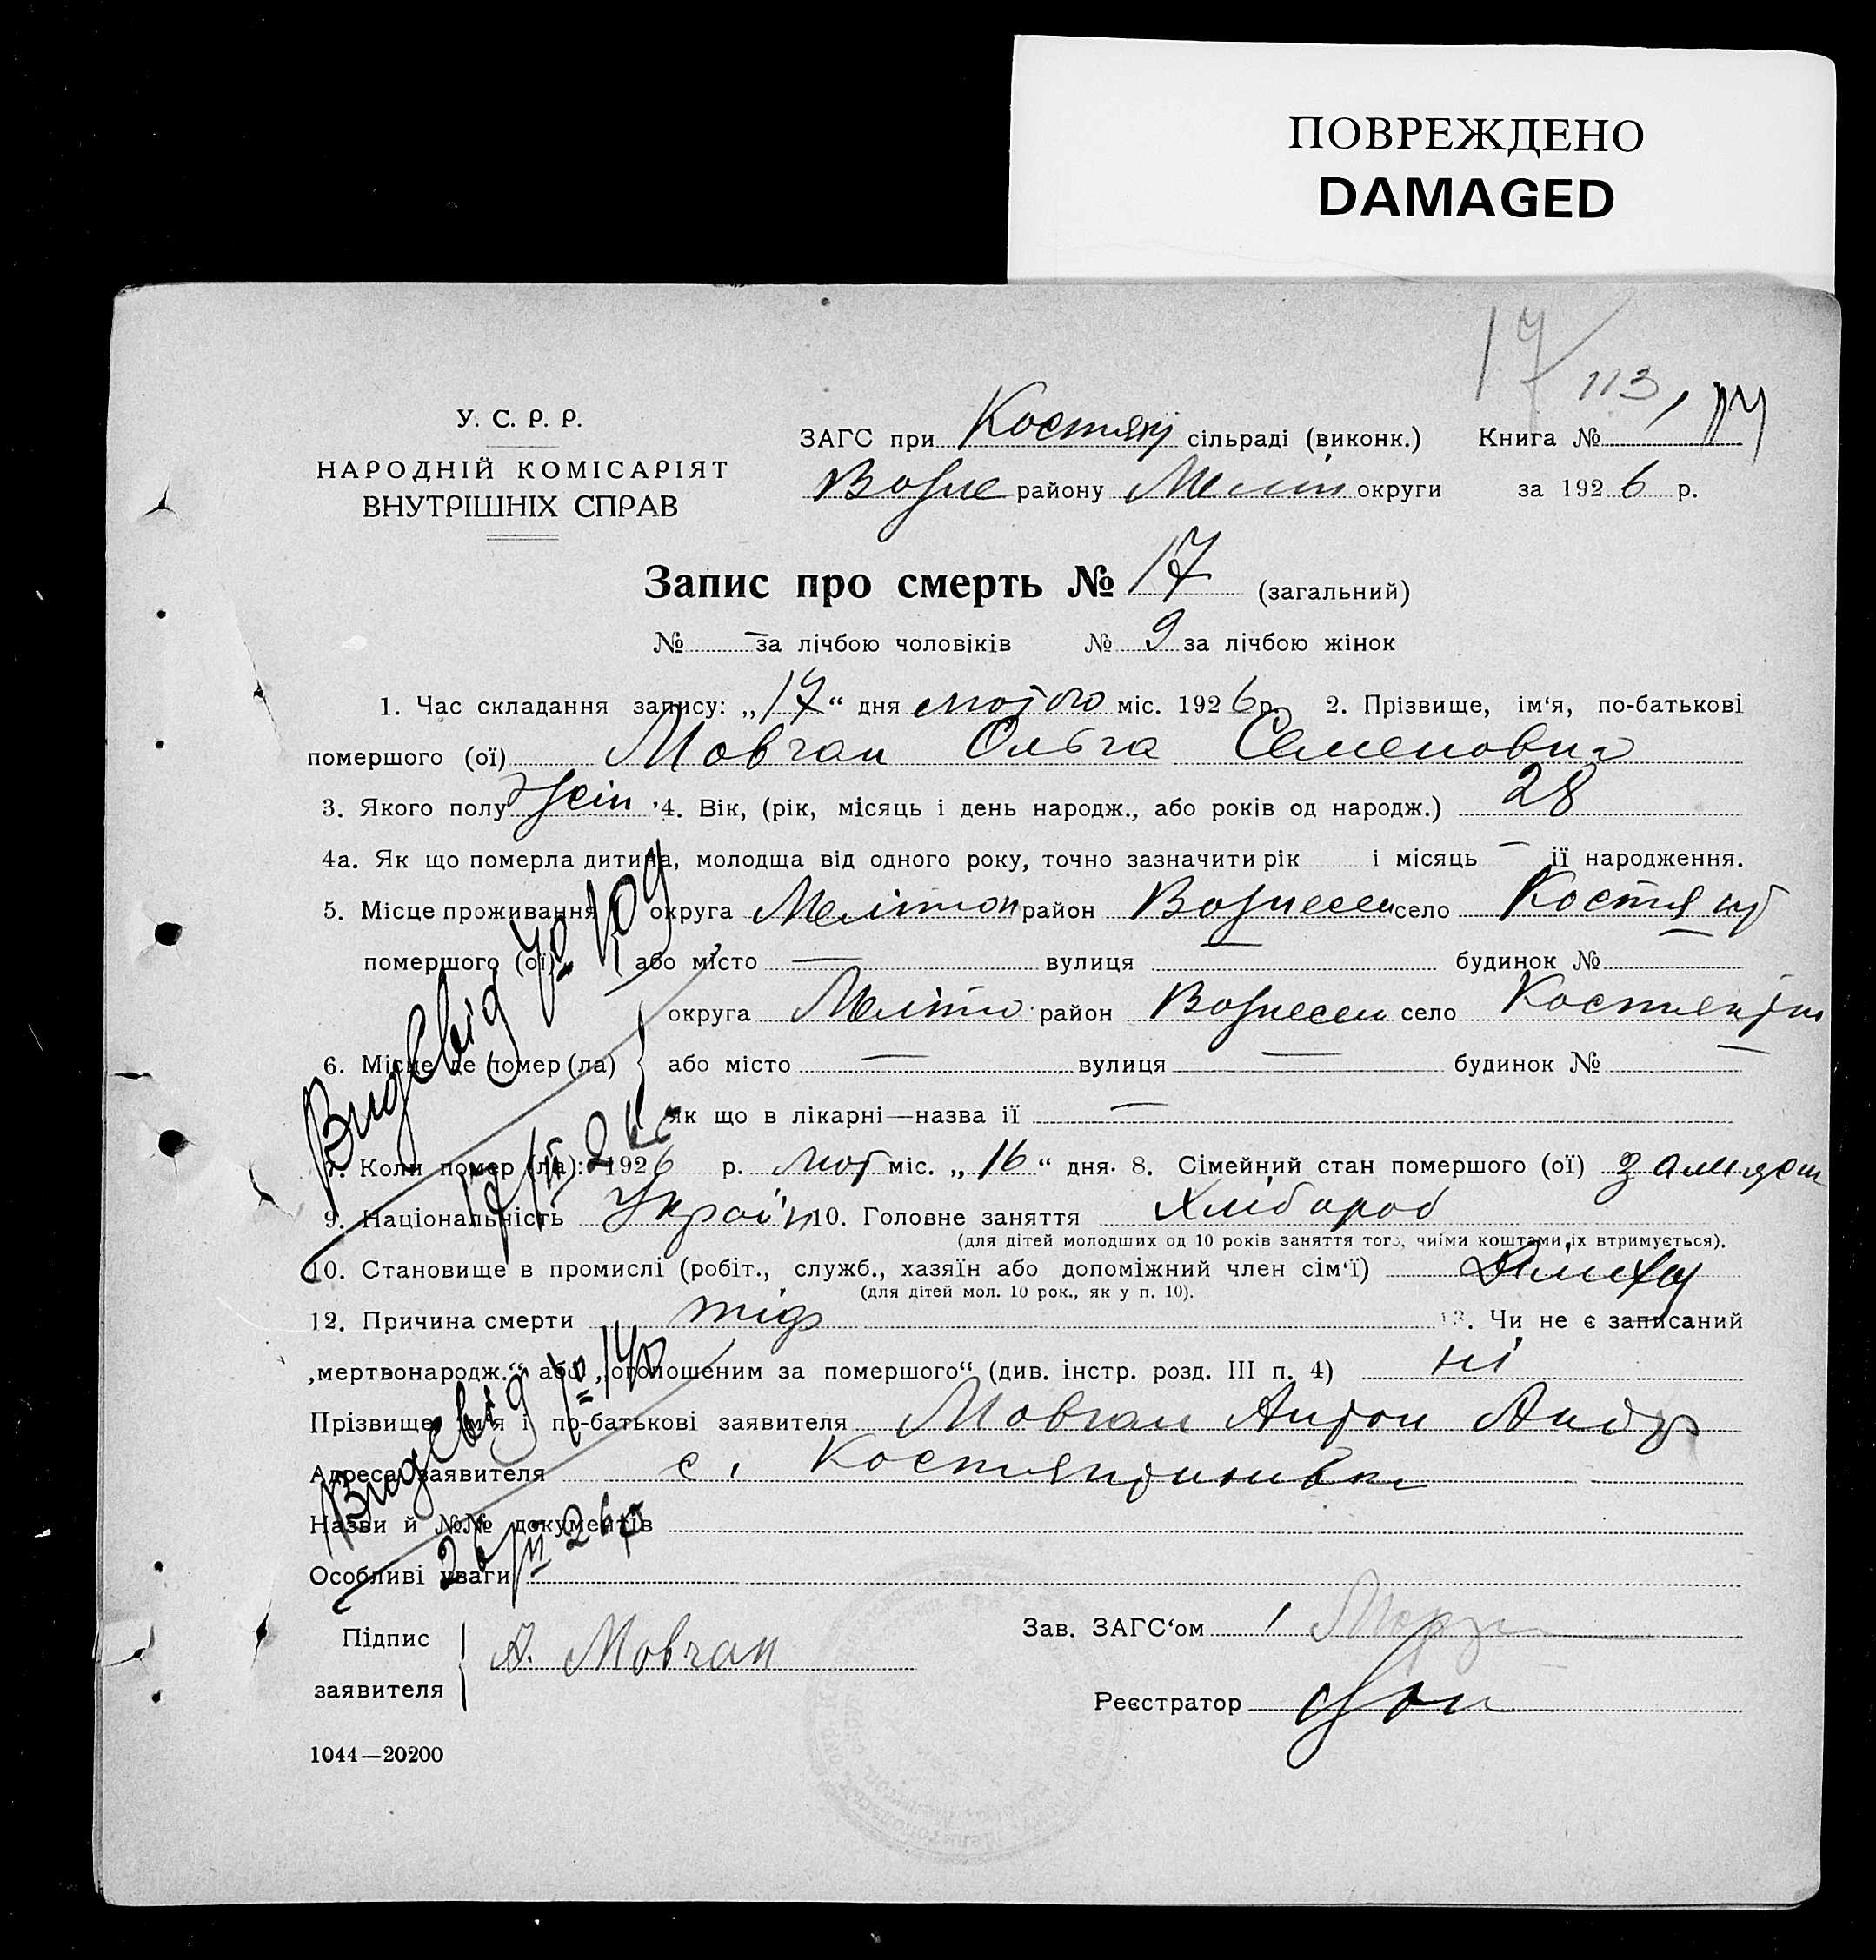 ПОВРЕЖДЕНО
DAMAGED
17
113
У. С. Р. Р.
НАРОДНІЙ КОМІСАРІЯТ
ВНУТРІШНІХ СПРАВ
ЗАГС при сільраді (виконк.) Книга №
Возне району Меліт округи за 1926 р.
Запис про смерть № 17 (загальний)
№ — за лічбою чоловіків № 9 за лічбою жінок
1. Час складання запису: „17“ дня лютого міс. 1926 р. 2. Прізвище, ім‘я, по-батькові
помершого (ої) Мовчан Ольга Семеновна
3. Якого полу жін 4. Вік, (рік, місяць і день народж., або років од народж.) 28
4а. Як що померла дитина, молодща від одного року, точно зазначити рік і місяць — ії народження.
5. Місце проживання округа Мелітоп район Вознесен село
помершого (ої) або місто — вулиця — будинок № —
округа Меліто район Вознесен село
6. Місце де помер (ла) або місто — вулиця — будинок № —
як що в лікарні—назва ії —
7. Коли помер (ла): 1926 р. лют міс. „16“ дня. 8. Сімейний стан помершого (ої) замужем
9. Національність Україн 10. Головне заняття Хлібороб
(для дітей молодших од 10 років заняття того, чиїми коштами їх втримується).
10. Становище в промислі (робіт., служб., хазяїн або допоміжний член сім‘ї)
(для дітей мол. 10 рок., як у п. 10).
12. Причина смерти тіф 13. Чи не є записаний
„мертвонародж.“ або „оголошеним за помершого“ (див. інстр. розд. III п. 4) ні
Прізвище, ім‘я і по-батькові заявителя Мовчан Антон Андр
Адреса заявителя с.
Назви й №№ документів
Особливі уваги
Підпис
заявителя
А. Мовчан
Зав. ЗАГС‘ом
Реєстратор
1044—20200